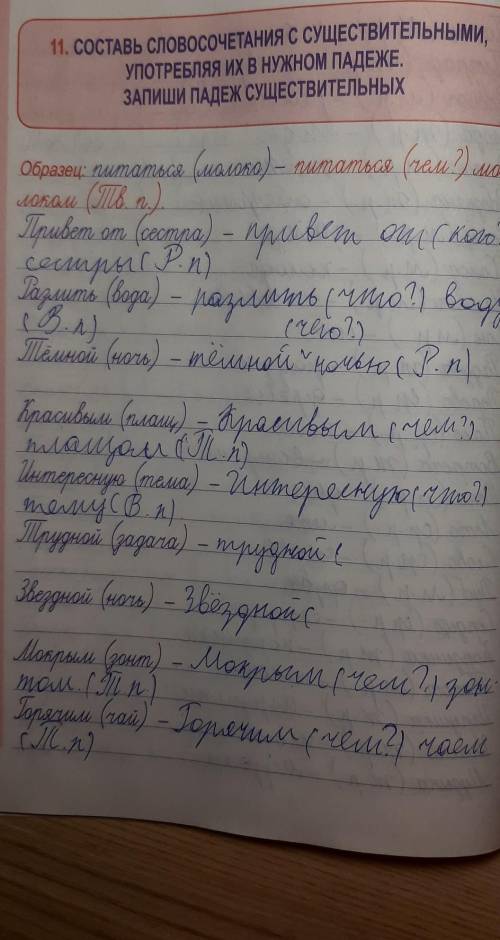 11. СОСТАВЬ СЛОВОСОЧЕТАНИЯ С СУЩЕСТВИТЕЛЬНЫМИ,
УПОТРЕБЛЯЯ ИХ В НУЖНОМ ПАДЕЖЕ.
ЗАПИШИ ПАДЕЖ СУЩЕСТВИТЕЛЬНЫХ
Образец: питаться (молоко) – питаться (чем?) мо
локом (Тв. п.).
Привет от (сестра) – привет от (кого?
сестры (Р. п)
Разлить (вода) – разлить (что?) воду
(В. п) (чего?)
Тёмной (ночь) – тёмной ˅ ночью (Р. п)
Красивым (плащ) – Красивым (чем?)
плащом (Т. п)
Интересную (тема) – Интересную (что?)
тему (В. п)
Трудной (задача) – трудной (
Звездной (ночь) – Звёздной (
Мокрым (зонт) – Мокрым (чем?) зон-
том. (Т п)
Горячим (чай) – Горячим (чем?) чаем
(Т. п)